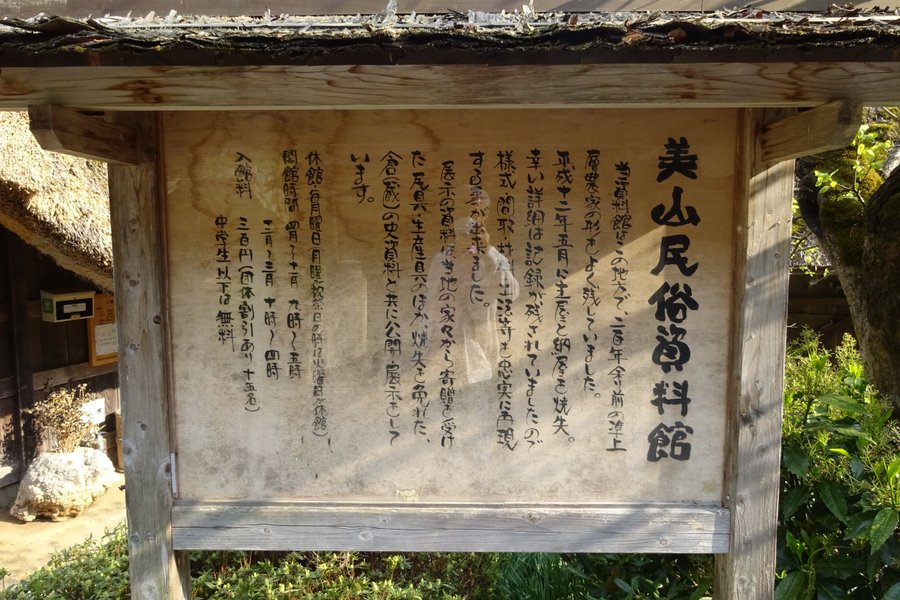 美山民俗資料館
当資料館はこの地方で、二百年余り前の準上
層農家の形をよく残していました。
平成十二年五月に主屋と納屋を焼失。
幸い詳細な記録が残されていましたので
様式、間取、材料、工法等を忠実に再現
する事が出来ました。
展示の資料は各地の家々から寄贈を受け
た民具・生産具のほか、焼失を免れた、
倉(蔵)の史資料と共に公開展示をして
います。
休館 毎月曜日(月曜が祝祭日の時は火曜日が休館)
開館時間 四月〜十一月 九時〜五時
十二月〜三月 十時〜四時
入館料 三百円(団体割引あり 十五名)
中学生以下は無料